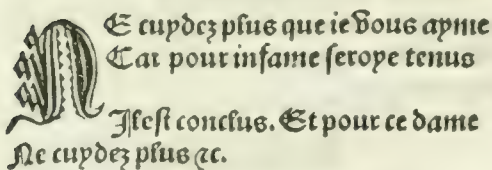 NE cuydez plus que ie vous ayme
Car pour infame seroye tenus
Il est conclus. Et pour ce dame
Ne cuydez plus ⁊c.